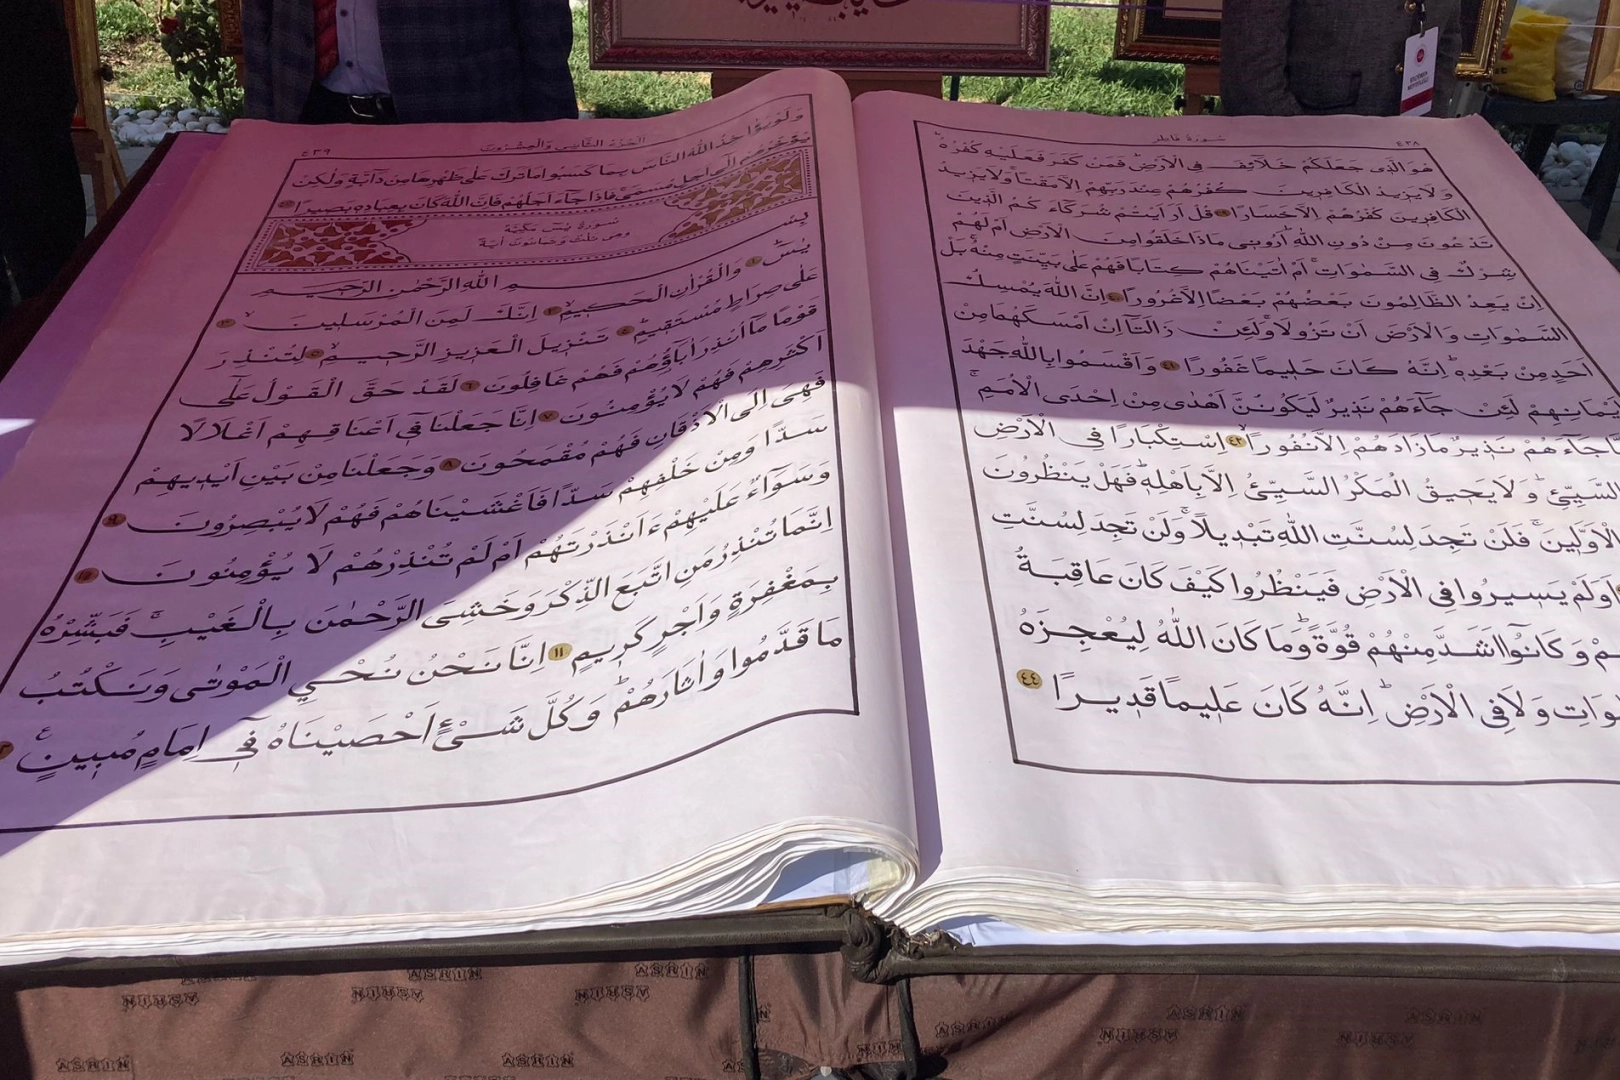 سُورَةُ فَاطِر ٤٣٨
هُوَ الَّذِى جَعَلَكُمْ خَلَٓائِفَ فِى الْاَرْضِ فَمَنْ كَفَرَ فَعَلَيْهِ كُفْرُهُ
وَلَا يَزِيدُ الْكَافِرِينَ كُفْرُهُمْ عِنْدَ رَبِّهِمْ اِلَّا مَقْتًا وَلَا يَزِيدُ
الْكَافِرِينَ كُفْرُهُمْ اِلَّا خَسَارًا ٣٩ قُلْ اَرَاَيْتُمْ شُرَكَٓاءَ كُمُ الَّذِينَ
تَدْعُونَ مِنْ دُونِ اللّٰهِ اَرُونِى مَاذَا خَلَقُوا مِنَ الْاَرْضِ اَمْ لَهُمْ
شِرْكٌ فِى السَّمٰوَاتِ اَمْ اٰتَيْنَاهُمْ كِتَابًا فَهُمْ عَلٰى بَيِّنَتٍ مِنْهُ بَلْ
اِنْ يَعِدُ الظَّالِمُونَ بَعْضُهُمْ بَعْضًا اِلَّا غُرُورًا ٤٠ اِنَّ اللّٰهَ يُمْسِكُ
السَّمٰوَاتِ وَالْاَرْضَ اَنْ تَزُولَا وَلَئِنْ زَالَتَٓا اِنْ اَمْسَكَهُمَا مِنْ
اَحَدٍ مِنْ بَعْدِهِ اِنَّهُ كَانَ حَلِيمًا غَفُورًا ٤١ وَاَقْسَمُوا بِاللّٰهِ جَهْدَ
اَيْمَانِهِمْ لَئِنْ جَٓاءَهُمْ نَذِيرٌ لَيَكُونُنَّ اَهْدٰى مِنْ اِحْدَى الْاُمَمِ
جَٓاءَهُمْ نَذِيرٌ مَازَادَهُمْ اِلَّا نُفُورًا ٤٢ اِسْتِكْبَارًا فِى الْاَرْضِ
السَّيِّئِ وَلَا يَحِيقُ الْمَكْرُ السَّيِّئُ اِلَّا بِاَهْلِهِ فَهَلْ يَنْظُرُونَ
الْاَوَّلِينَ فَلَنْ تَجِدَ لِسُنَّتِ اللّٰهِ تَبْدِيلًا وَلَنْ تَجِدَ لِسُنَّتِ
اَوَلَمْ يَسِيرُوا فِى الْاَرْضِ فَيَنْظُرُوا كَيْفَ كَانَ عَاقِبَةُ
وَكَانُٓوا اَشَدَّ مِنْهُمْ قُوَّةً وَمَا كَانَ اللّٰهُ لِيُعْجِزَهُ
وَلَا فِى الْاَرْضِ اِنَّهُ كَانَ عَلِيمًا قَدِيرًا ٤٤
اَلْجُزْءُ الثَّانِى وَالْعِشْرُونَ ٤٣٩
وَلَوْ يُؤَاخِذُ اللّٰهُ النَّاسَ بِمَا كَسَبُوا مَا تَرَكَ عَلٰى ظَهْرِهَا مِنْ دَٓابَّةٍ وَلٰكِنْ
يُؤَخِّرُهُمْ اِلٰٓى اَجَلٍ مُسَمًّى فَاِذَا جَٓاءَ اَجَلُهُمْ فَاِنَّ اللّٰهَ كَانَ بِعِبَادِهِ بَصِيرًا
سُورَةُ يٰسٓ مَكِّيَّةٌ
وَهِىَ ثَلَاثٌ وَثَمَانُونَ اٰيَةً
بِسْمِ اللّٰهِ الرَّحْمٰنِ الرَّحِيمِ
يٰسٓ ١ وَالْقُرْاٰنِ الْحَكِيمِ ٢ اِنَّكَ لَمِنَ الْمُرْسَلِينَ ٣
عَلٰى صِرَاطٍ مُسْتَقِيمٍ ٤ تَنْزِيلَ الْعَزِيزِ الرَّحِيمِ ٥ لِتُنْذِرَ
قَوْمًا مَٓا اُنْذِرَ اٰبَٓاؤُهُمْ فَهُمْ غَافِلُونَ ٦ لَقَدْ حَقَّ الْقَوْلُ عَلٰٓى
اَكْثَرِهِمْ فَهُمْ لَا يُؤْمِنُونَ ٧ اِنَّا جَعَلْنَا فِٓى اَعْنَاقِهِمْ اَغْلَالًا
فَهِىَ اِلَى الْاَذْقَانِ فَهُمْ مُقْمَحُونَ ٨ وَجَعَلْنَا مِنْ بَيْنِ اَيْدِيهِمْ
سَدًّا وَمِنْ خَلْفِهِمْ سَدًّا فَاَغْشَيْنَاهُمْ فَهُمْ لَا يُبْصِرُونَ ٩
وَسَوَٓاءٌ عَلَيْهِمْ ءَاَنْذَرْتَهُمْ اَمْ لَمْ تُنْذِرْهُمْ لَا يُؤْمِنُونَ ١٠
اِنَّمَا تُنْذِرُ مَنِ اتَّبَعَ الذِّكْرَ وَخَشِىَ الرَّحْمٰنَ بِالْغَيْبِ فَبَشِّرْهُ
بِمَغْفِرَةٍ وَاَجْرٍ كَرِيمٍ ١١ اِنَّا نَحْنُ نُحْيِى الْمَوْتٰى وَنَكْتُبُ
مَا قَدَّمُوا وَاٰثَارَهُمْ وَكُلَّ شَىْءٍ اَحْصَيْنَاهُ فِٓى اِمَامٍ مُبِينٍ
ASRIN ASRIN ASRIN
ASRIN ASRIN ASRIN
ASRIN ASRIN ASRIN